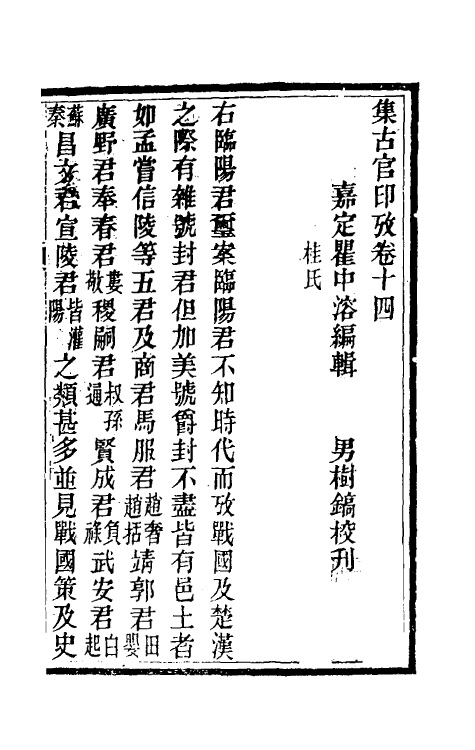 集古官印攷卷十四
嘉定瞿中溶編輯　男樹鎬校刊
桂氏
右臨陽君璽案臨陽君不知時代而攷戰國及楚漢
之際有雜號封君但加美號爵封不盡皆有邑土者
如孟嘗信陵等五君及商君馬服君趙奢趙括靖郭君田嬰
廣野君奉春君婁敬稷嗣君叔孫通賢成君負祿武安君白起
蘇秦昌文君宣陵君皆灌陽之類甚多並見戰國策及史